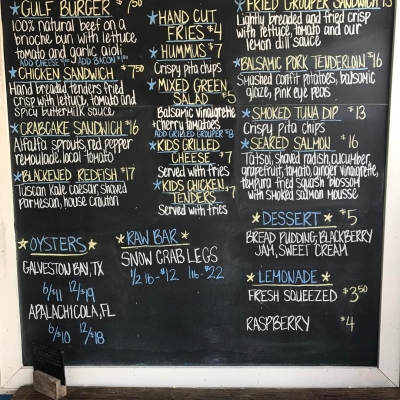 GULF BURGER $7.50
100% natural beef on a
brioche bun with lettuce,
tomato and garlic aioli
ADD CHEESE ADD BACON
CHICKEN SANDWICH $7.50
Hand breaded tenders fried
crisp with lettuce, tomato and
spicy buttermilk sauce
CRABCAKE SANDWICH $16
Alfalfa sprouts, red pepper
remoulade, local tomato
BLACKENED REDFISH $17
Tuscan kale caesar, shaved
parmesan, house crouton
HAND CUT
FRIES $4
HUMMUS $7
Crispy pita chips
MIXED GREEN
SALAD $5
Balsamic vinaigrette
cherry tomatoes
ADD GRILLED GROUPER $8
KIDS GRILLED
CHEESE $7
Served with fries
KIDS CHICKEN
TENDERS $7
Served with fries
FRIED GROUPER SANDWICH 15
Lightly breaded and fried crisp
with lettuce, tomato and our
lemon dill sauce
BALSAMIC PORK TENDERLOIN $16
Smashed confit potatoes, balsamic
glaze, pink eye peas
SMOKED TUNA DIP $13
Crispy pita chips
SEARED SALMON $16
Tatsoi, shaved radish, cucumber,
grapefruit, tomato, ginger vinaigrette,
tempura fried squash blossom
with smoked salmon mousse
DESSERT $5
BREAD PUDDING, BLACKBERRY
JAM, SWEET CREAM
LEMONADE
FRESH SQUEEZED $3.50
RASPBERRY $4
OYSTERS
GALVESTON BAY, TX
6/$11 12/$19
APALACHICOLA, FL
6/$10 12/$18
RAW BAR
SNOW CRAB LEGS
1/2 lb - $12 1lb - $22